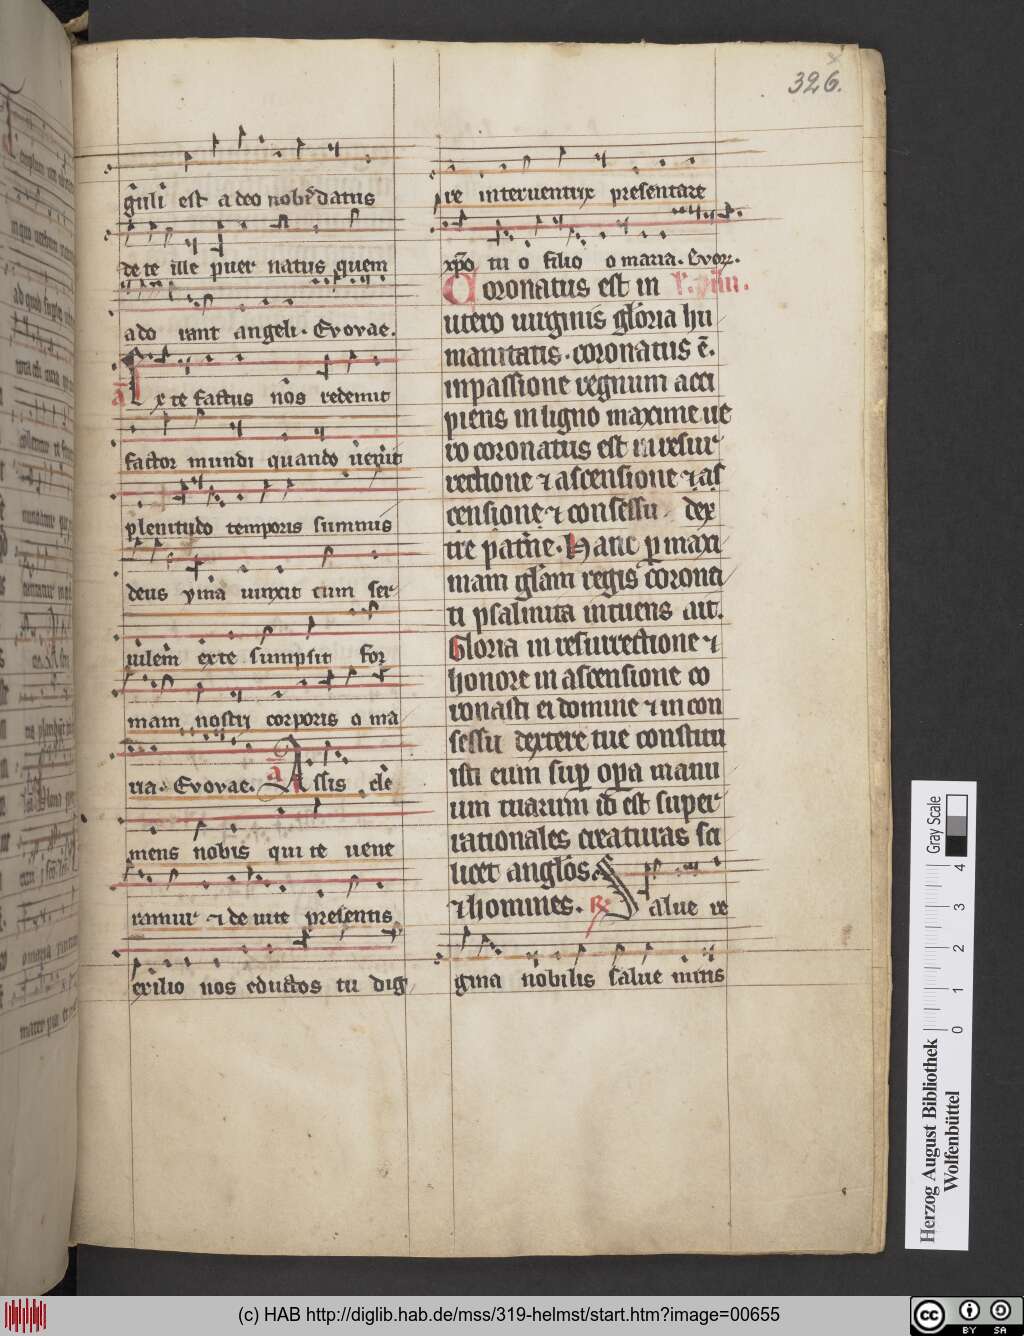 326.
g̃uli est a deo nobĩs datus
de te ille puer natus quem
ado rant angeli. Evovae.
Ex te factus nos redemit
factor mundi quando uenit
plenitudo temporis summus
deus uinxit cum ser
uilem ex te sumpsit for
mam nostri corporis o ma
ria. Evovae. Assis cle
mens nobis qui te uene
ramur ⁊ de uite presentis
exilio nos eductos tu dig
re interuentrix presentare
xp̃o tu o filio o maria. Evoũ.
Coronatus est in
utero uirginis gloria hu
manitatis. coronatus ē.
inpassione regnum acci
piens in ligno maxime ue
ro coronatus est in resur
rectione ⁊ ascensione ⁊ as
censione ⁊ consessu dex
tre patrie. Hanc p maxi
mam glām regis corona
ti psalmita intuens ait.
Gloria in resurrectione ⁊
honore in ascensione co
ronasti ei domine ⁊ in con
sessu dextere tue constitu
isti eum sup opa manu
um tuarum id est super
rationales creaturas sci
licet anglos
⁊ homines. ℟ Salue re
gina nobilis salue mitis
Herzog August Bibliothek
Wolfenbüttel
0 1 2 3 4
Gray Scale
(c) HAB http://diglib.hab.de/mss/319-helmst/start.htm?image=00655
cc BY SA